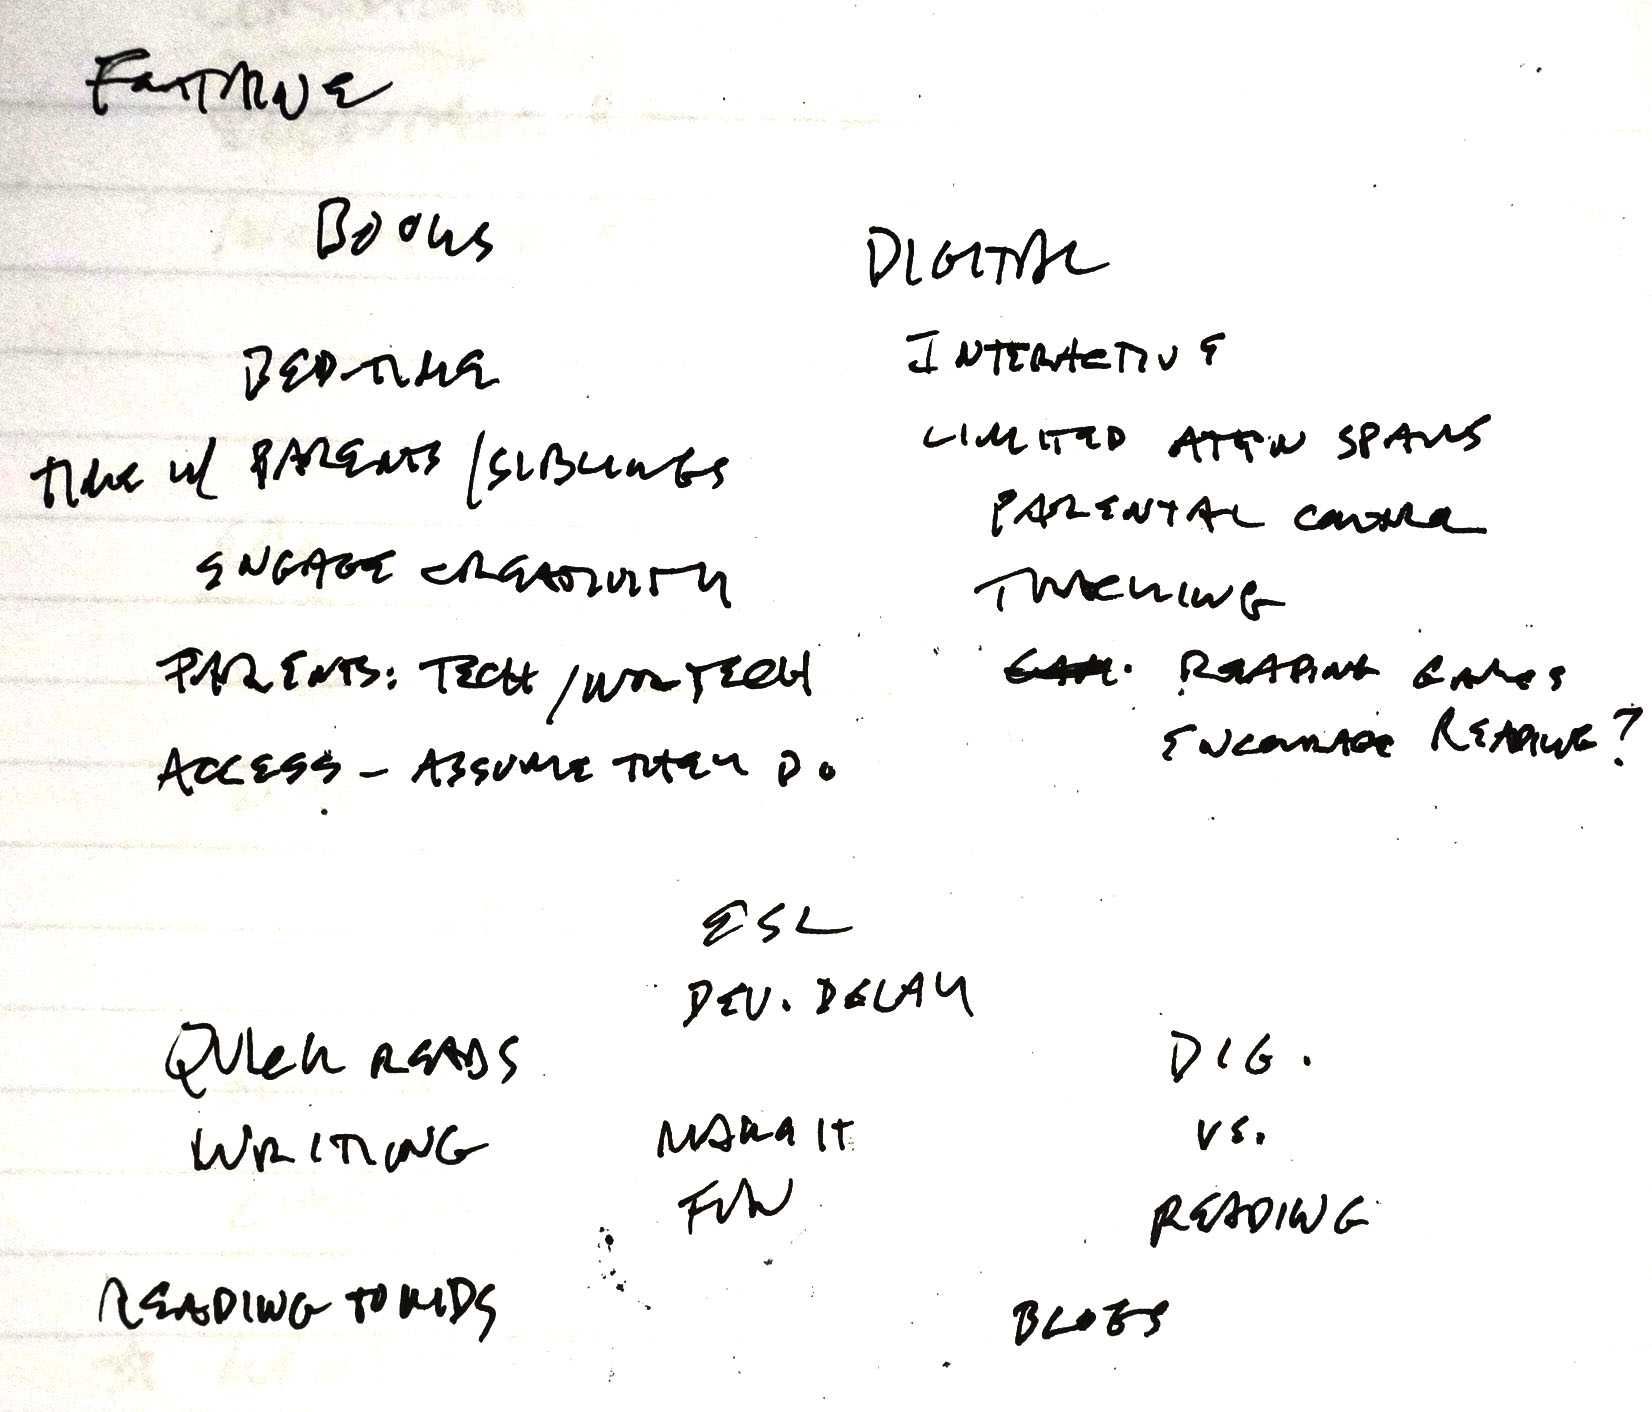 BOOKS
BED-TIME
TIME W/ PARENTS / SIBLINGS
ENGAGE CREATIVITY
PARENTS: TECH / NON TECH
ACCESS - ASSUME THEY DO
DIGITAL
INTERACTIVE
LIMITED ATTEN SPANS
PARENTAL CONTROL
TRACKING
READING GAMES
ENCOURAGE READING?
ESL
DEV. DELAY
QUICK READS
WRITING
MAKE IT
FUN
DIG.
VS.
READING
READING TO KIDS
BLOGS